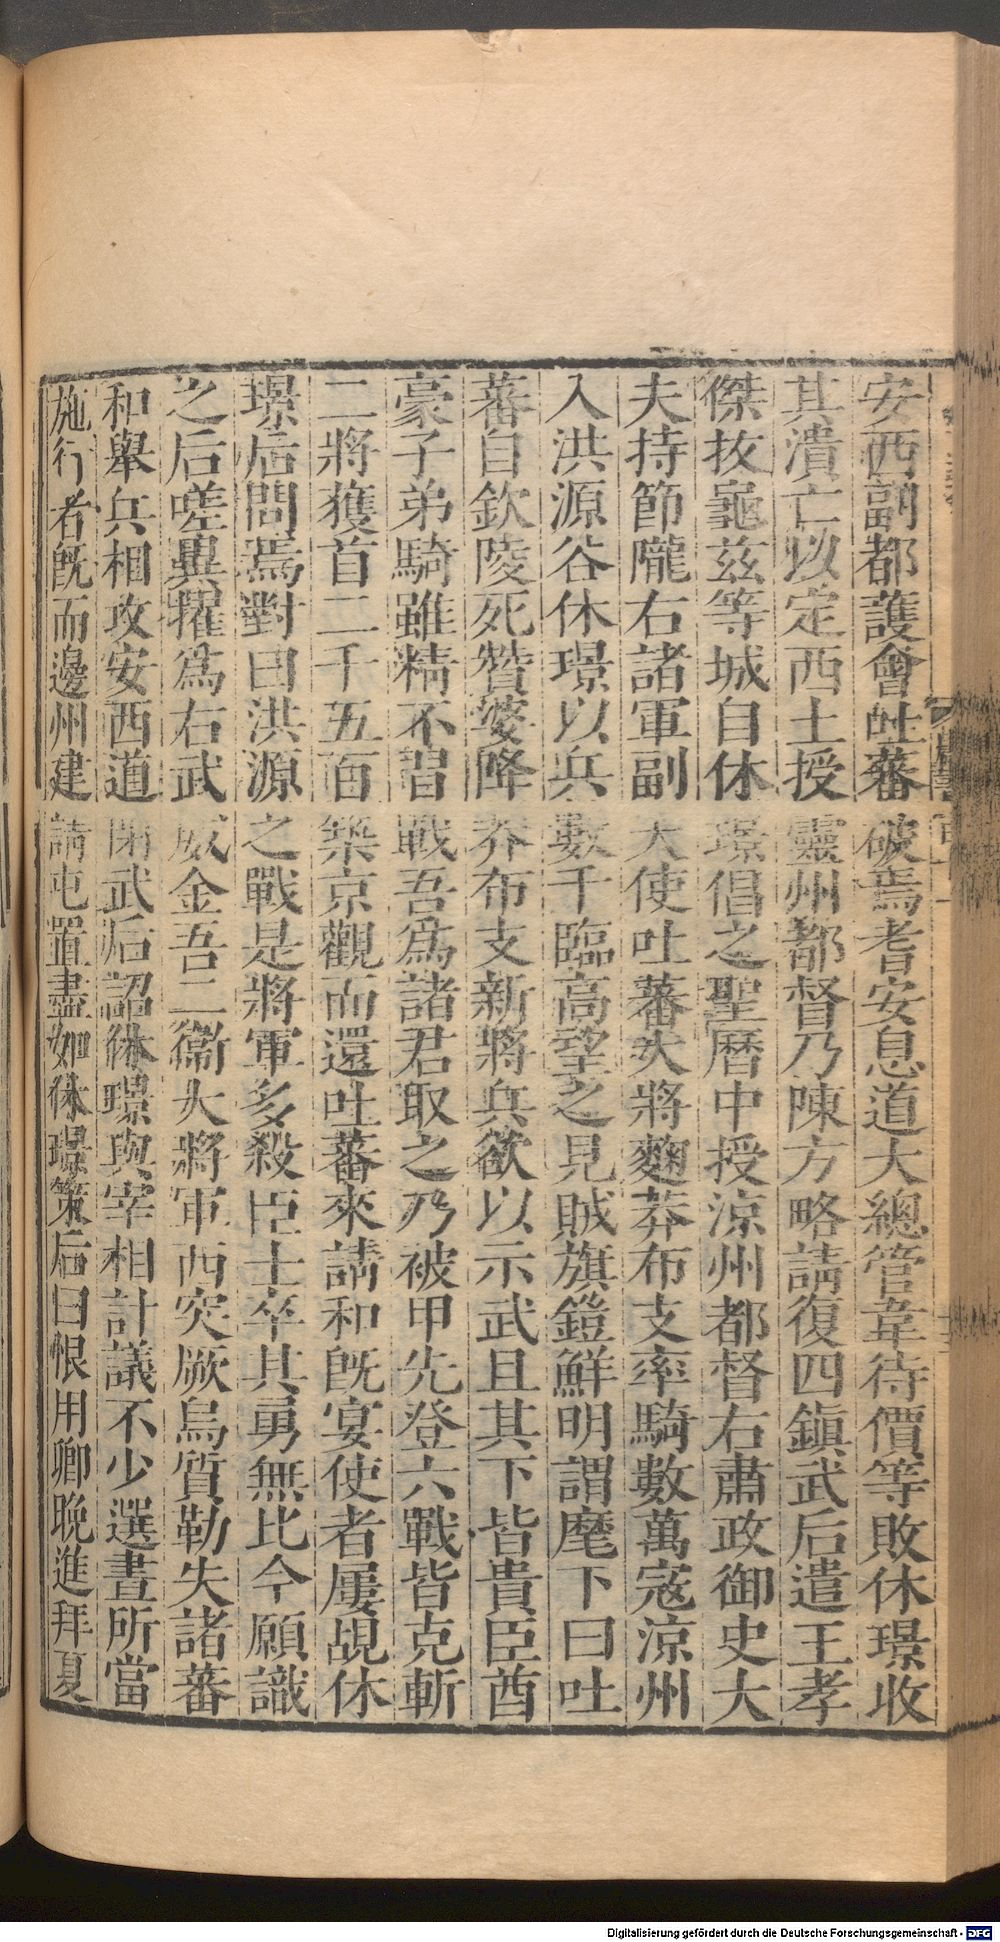 安西副都護會吐蕃破焉耆安息道大總管韋待價等敗休璟收
其潰亡以定西土授靈州都督乃陳方略請復四鎮武后遣王孝
傑拔龜茲等城自休璟倡之聖曆中授涼州都督右肅政御史大
夫持節隴右諸軍副大使吐蕃大將麴莽布支率騎數萬寇涼州
入洪源谷休璟以兵數千臨高望之見賊旗鎧鮮明謂麾下曰吐
蕃自欽陵死贊婆降莽布支新將兵欲以示武且其下皆貴臣酋
豪子弟騎雖精不習戰吾爲諸君取之乃被甲先登六戰皆克斬
二將獲首二千五百築京觀而還吐蕃來請和旣宴使者屢覘休
璟后問焉對曰洪源之戰是將軍多殺臣士卒其勇無比今願識
之后嗟異擢爲右武威金吾二衞大將軍西突厥烏質勒失諸蕃
和舉兵相攻安西道閉武后詔休璟與宰相計議不少選畫所當
施行者旣而邊州建請屯置盡如休璟策后曰恨用卿晚進拜夏
Digitalisierung gefördert durch die Deutsche Forschungsgemeinschaft - DFG